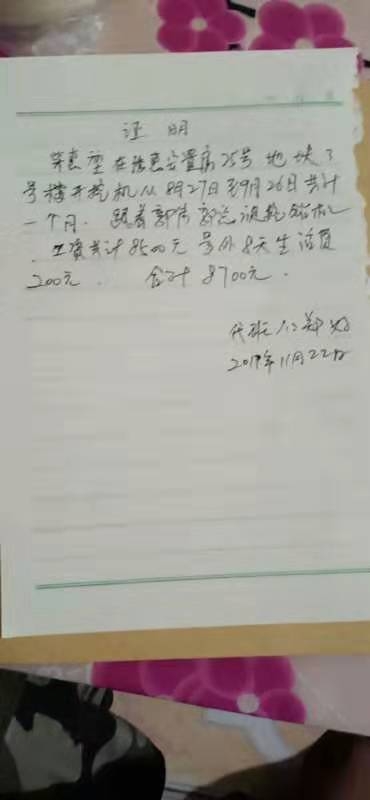 证明
在 安置房25号地块3
号楼开挖机从8月27日至9月26日共计
一个月. 跟着郭伟郭总 挖机
. 工资共计8500元 另外8天生活费
200元. 合计8700元.
代班人: 郑
2019年11月22日